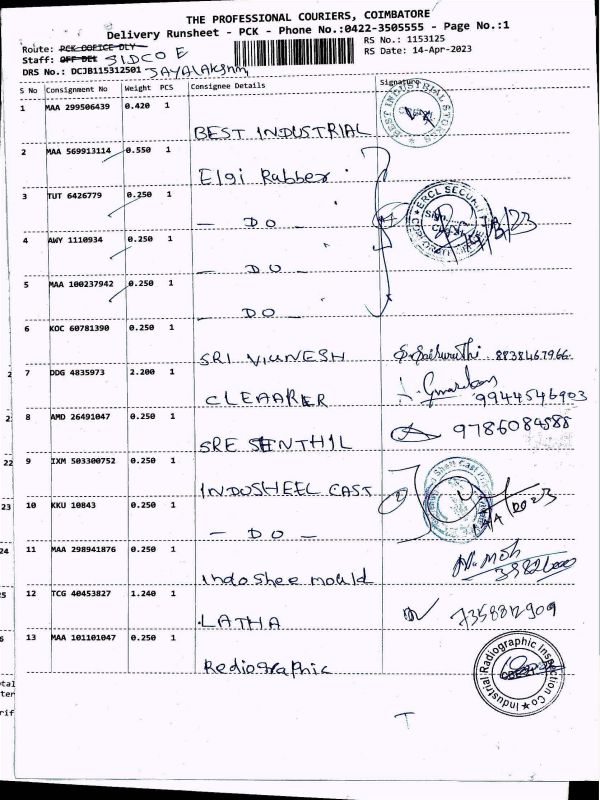 THE PROFESSIONAL COURIERS, COIMBATORE
Delivery Runsheet - PCK - Phone No.:0422-3505555 - Page No.:1
Route: PCK COFICE DLY RS No.: 1153125
Staff: OFF DEL SIDCO E RS Date: 14-Apr-2023
DRS No.: DCJB115312501 JAYALAKSHMI
S No Consignment No Weight PCS Consignee Details Signature
1 MAA 299506439 0.420 1
BEST INDUSTRIAL
2 MAA 569913114 0.550 1
Elgi Rubber
3 TUT 6426779 0.250 1
- DO -
4 AWY 1110934 0.250 1
- DO -
5 MAA 100237942 0.250 1
- DO -
6 KOC 60781390 0.250 1
SRI VIGNESH 8838467966
7 DDG 4835973 2.200 1
CLEARER 9944546903
8 AMD 26491047 0.250 1
SRE SENTHIL 9786084588
9 IXM 503300752 0.250 1
INDOSHEEL CAST
10 KKU 10843 0.250 1
- DO -
11 MAA 298941876 0.250 1
indoshee mould
12 TCG 40453827 1.240 1
LATHA 7358812909
13 MAA 101101047 0.250 1
Rediographic
Industrial Radiographic Inspection Co